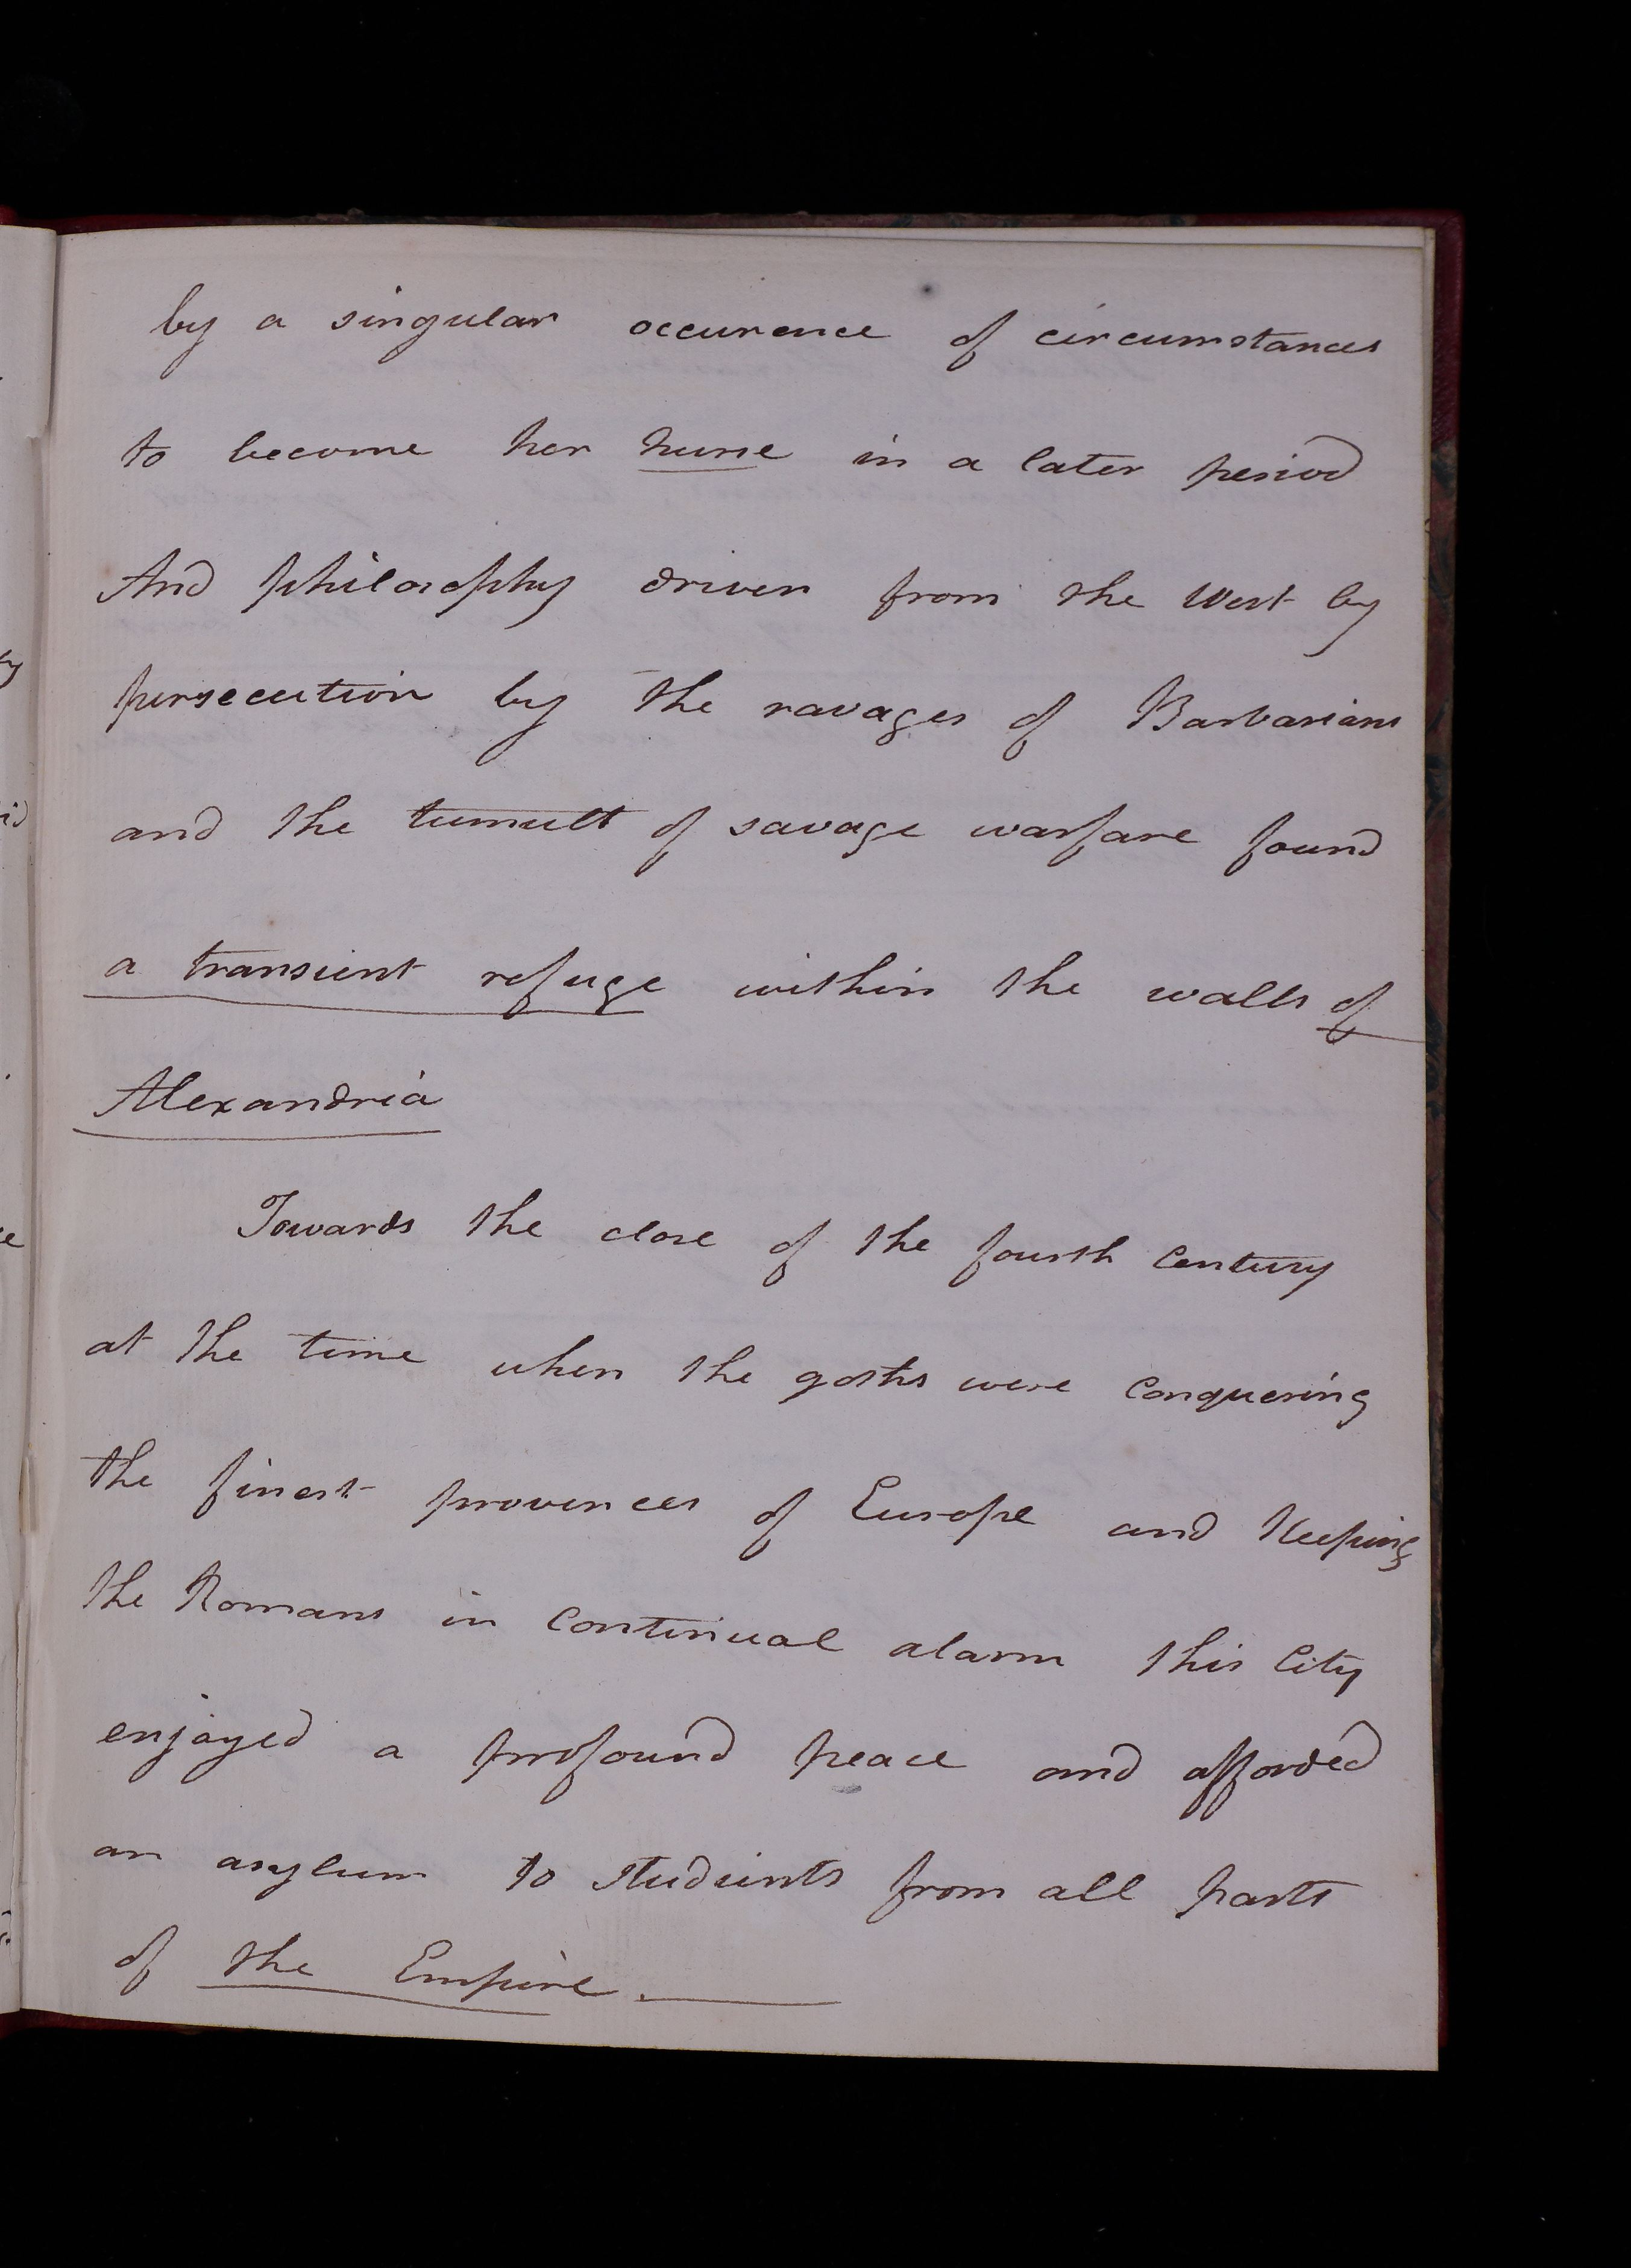 by a singular occurence of circumstances
to become her nurse in a later period
And philosophy driven from the West by
persecution by the ravages of Barbarians
and the tumult of savage warfare found
a transient refuge within the walls of
Alexandria
Towards the close of the fourth century
at the time when the goths were conquering
the finest provinces of Europe and Keeping
the Romans in continual alarm this City
enjoyed a profound peace and afforded
an asylum to students from all parts
of the Empire.